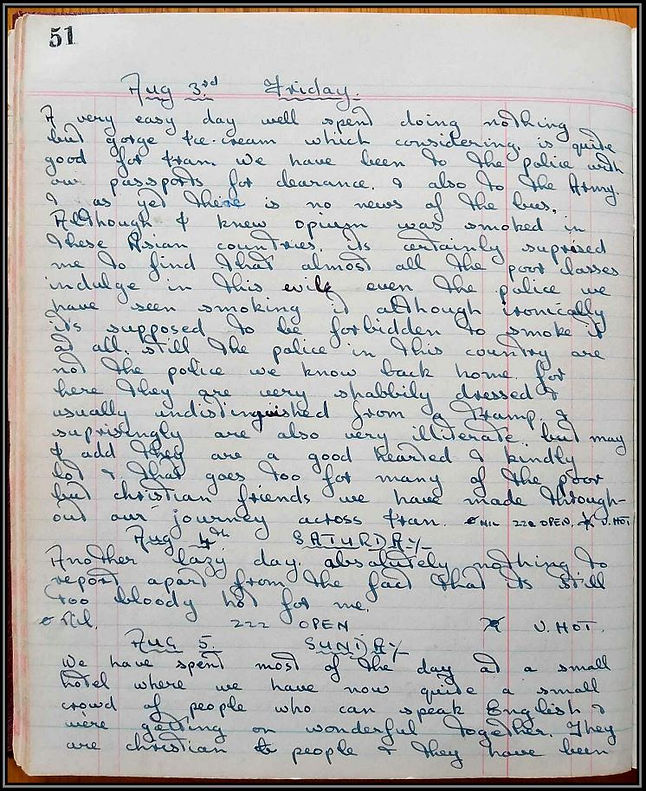 51
Aug 3rd Friday.
A very easy day well spent doing nothing
but gorge Ice-cream which considering is quite
good for Iran. We have been to the police with
our passports for clearance. & also to the Army.
& as yet there is no news of the bus.
Although I knew opium was smoked in
these Asian countries. its certainly suprised
me to find that almost all the poor classes
indulge in this evil even the police we
have seen smoking it although ironically
its supposed to be forbidden to smoke it
at all. Still the police in this country are
not the police we know back home. for
here they are very shabbily dressed &
usually undistinguished from a tramp. &
suprisingly are also very illiterate. but may
I add they are a good hearted & kindly
lot & that goes too for many of the poor
but christian friends we have made through-
out our journey across Iran. e NIL 222 OPEN. V. HOT
Aug 4th SATURDAY
Another lazy day. absolutely nothing to
report apart from the fact that its still
too bloody hot for me.
e Nil. 222 OPEN V. HOT.
Aug 5. SUNDAY
We have spent most of the day at a small
hotel where we have now quite a small
crowd of people who can speak English &
were getting on wonderful together. They
are christian people & they have been